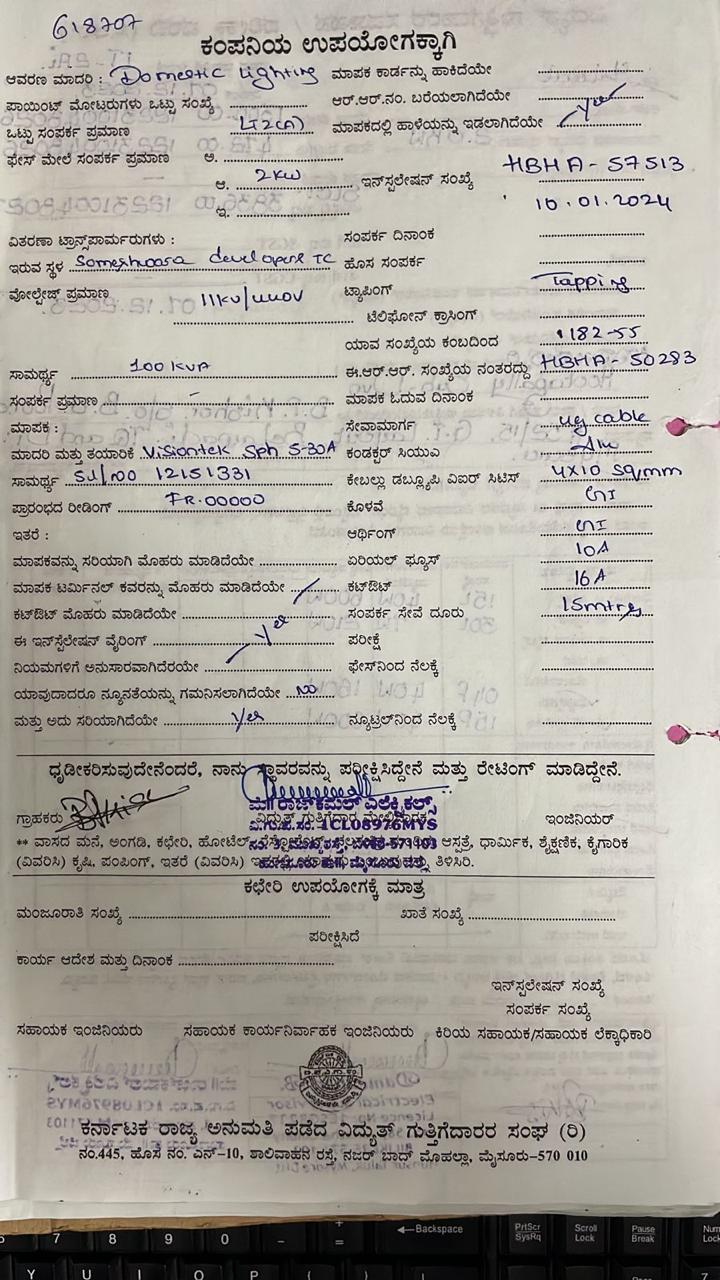 618707
ಕಂಪನಿಯ ಉಪಯೋಗಕ್ಕಾಗಿ
ಆವರಣ ಮಾದರಿ : Domestic Lighting ಮಾಪಕ ಕಾರ್ಡನ್ನು ಹಾಕಿದೆಯೇ
ಪಾಯಿಂಟ್ ಮೋಟರುಗಳು ಒಟ್ಟು ಸಂಖ್ಯೆ ಆರ್.ಆರ್.ನಂ. ಬರೆಯಲಾಗಿದೆಯೇ
ಒಟ್ಟು ಸಂಪರ್ಕ ಪ್ರಮಾಣ LT2(A) ಮಾಪಕದಲ್ಲಿ ಹಾಳೆಯನ್ನು ಇಡಲಾಗಿದೆಯೇ Yes
ಫೇಸ್ ಮೇಲೆ ಸಂಪರ್ಕ ಪ್ರಮಾಣ ಅ.
ಆ. 2KW ಇನ್‌ಸ್ಪಲೇಷನ್ ಸಂಖ್ಯೆ HBHA-57513
ಇ. 10.01.2024
ವಿತರಣಾ ಟ್ರಾನ್ಸ್‌ಪಾರ್ಮರುಗಳು : ಸಂಪರ್ಕ ದಿನಾಂಕ
ಇರುವ ಸ್ಥಳ Someshwara developers TC ಹೊಸ ಸಂಪರ್ಕ
ವೋಲ್ಟೇಜ್ ಪ್ರಮಾಣ 11KV/440V ಟ್ಯಾಪಿಂಗ್ Tapping
ಟೆಲಿಫೋನ್ ಕ್ರಾಸಿಂಗ್
ಯಾವ ಸಂಖ್ಯೆಯ ಕಂಬದಿಂದ 182-55
ಸಾಮರ್ಥ್ಯ 100 KVA ಈ.ಆರ್.ಆರ್. ಸಂಖ್ಯೆಯ ನಂತರದ್ದು HBHA-50283
ಸಂಪರ್ಕ ಪ್ರಮಾಣ - ಮಾಪಕ ಓದುವ ದಿನಾಂಕ
ಮಾಪಕ : ಸೇವಾಮಾರ್ಗ ug cable
ಮಾದರಿ ಮತ್ತು ತಯಾರಿಕೆ Visiontek Sph 5-30A ಕಂಡಕ್ಟರ್ ಸಿಯುವಿ
ಸಾಮರ್ಥ್ಯ Sl/no 12151331 ಕೇಬಲ್ಲು ಡಬ್ಲ್ಯೂಪಿ ವಿಐರ್ ಸಿಟಿಸ್ 4X10 Sq/mm
ಪ್ರಾರಂಭದ ರೀಡಿಂಗ್ FR.00000 ಕೊಳವೆ GI
ಇತರೆ : ಆರ್ಥಿಂಗ್ GI
ಮಾಪಕವನ್ನು ಸರಿಯಾಗಿ ಮೊಹರು ಮಾಡಿದೆಯೇ ಏರಿಯಲ್ ಫ್ಯೂಸ್ 10A
ಮಾಪಕ ಟರ್ಮಿನಲ್ ಕವರನ್ನು ಮೊಹರು ಮಾಡಿದೆಯೇ ಕಟ್‌ಔಟ್ 16A
ಕಟ್‌ಔಟ್ ಮೊಹರು ಮಾಡಿದೆಯೇ ಸಂಪರ್ಕ ಸೇವೆ ದೂರು 15mtrs
ಈ ಇನ್‌ಸ್ಟೆಲೇಷನ್ ವೈರಿಂಗ್ Yes ಪರೀಕ್ಷೆ
ನಿಯಮಗಳಿಗೆ ಅನುಸಾರವಾಗಿದೆರಯೇ ಫೇಸ್‌ನಿಂದ ನೆಲಕ್ಕೆ
ಯಾವುದಾದರೂ ನ್ಯೂನತೆಯನ್ನು ಗಮನಿಸಲಾಗಿದೆಯೇ No
ಮತ್ತು ಅದು ಸರಿಯಾಗಿದೆಯೇ Yes ನ್ಯೂಟ್ರಲ್‌ನಿಂದ ನೆಲಕ್ಕೆ
ಧೃಡೀಕರಿಸುವುದೇನೆಂದರೆ, ನಾನು ಸ್ಥಾವರವನ್ನು ಪರೀಕ್ಷಿಸಿದ್ದೇನೆ ಮತ್ತು ರೇಟಿಂಗ್ ಮಾಡಿದ್ದೇನೆ.
ಮೆ॥ ರಾಜ್‌ಕಮಲ್ ಎಲೆಕ್ಟ್ರಿಕಲ್ಸ್
ಗ್ರಾಹಕರು ವಿದ್ಯುತ್ ಗುತ್ತಿಗೆದಾರರ ಇಂಜಿನಿಯರ್
ವಿ.ಗು.ಪ.ಸಂ. 1CL08976MYS
** ವಾಸದ ಮನೆ, ಅಂಗಡಿ, ಕಛೇರಿ, ಹೋಟೆಲ್, ಆಸ್ಪತ್ರೆ, ಧಾರ್ಮಿಕ, ಶೈಕ್ಷಣಿಕ, ಕೈಗಾರಿಕ
(ವಿವರಿಸಿ) ಕೃಷಿ, ಪಂಪಿಂಗ್, ಇತರೆ (ವಿವರಿಸಿ) ತಿಳಿಸಿರಿ.
ಕಛೇರಿ ಉಪಯೋಗಕ್ಕೆ ಮಾತ್ರ
ಮಂಜೂರಾತಿ ಸಂಖ್ಯೆ ಖಾತೆ ಸಂಖ್ಯೆ
ಪರೀಕ್ಷಿಸಿದೆ
ಕಾರ್ಯ ಆದೇಶ ಮತ್ತು ದಿನಾಂಕ
ಇನ್‌ಸ್ಪಲೇಷನ್ ಸಂಖ್ಯೆ
ಸಂಪರ್ಕ ಸಂಖ್ಯೆ
ಸಹಾಯಕ ಇಂಜಿನಿಯರು ಸಹಾಯಕ ಕಾರ್ಯನಿರ್ವಾಹಕ ಇಂಜಿನಿಯರು ಕಿರಿಯ ಸಹಾಯಕ/ಸಹಾಯಕ ಲೆಕ್ಕಾಧಿಕಾರಿ
ಕರ್ನಾಟಕ ರಾಜ್ಯ ಅನುಮತಿ ಪಡೆದ ವಿದ್ಯುತ್ ಗುತ್ತಿಗೆದಾರರ ಸಂಘ (ರಿ)
ನಂ.445, ಹೊಸ ನಂ. ಎನ್-10, ಶಾಲಿವಾಹನ ರಸ್ತೆ, ನಜರ್ ಬಾದ್ ಮೊಹಲ್ಲಾ, ಮೈಸೂರು-570 010
Backspace PrtScr SysRq Scroll Lock Pause Break Num Lock
7 8 9 0 - + =
Y U I O P